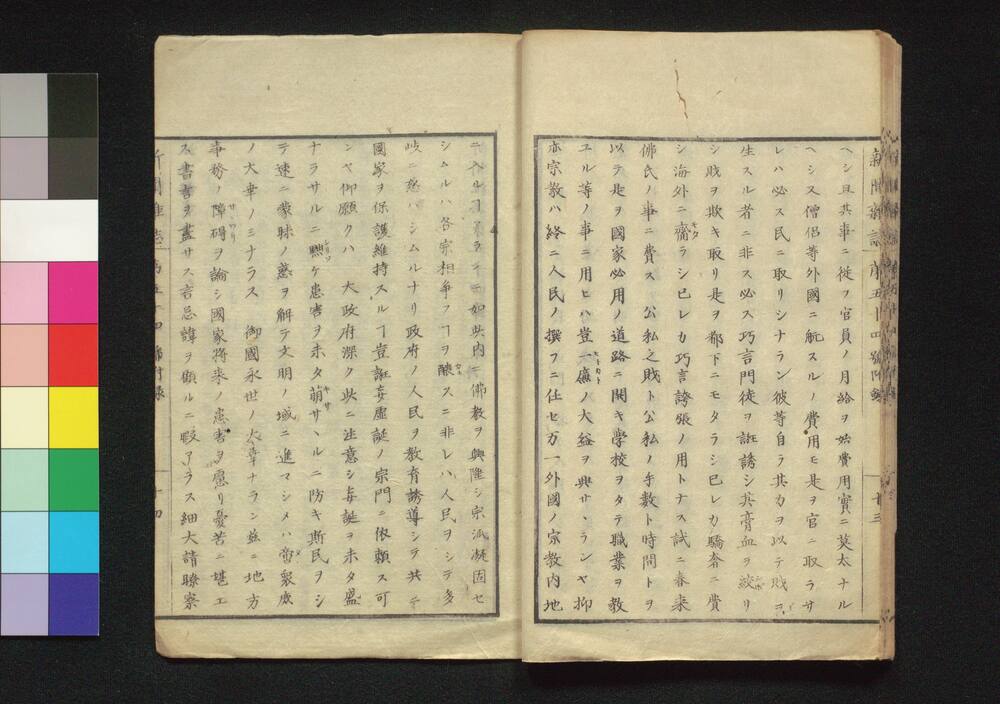 新聞雜誌 第五十四號附錄 十三
ヘシ且其事ニ從フ官員ノ月給ヲ始費用實ニ莫太ナル
ヘシス僧侶等外國ニ航スルノ費用モ是ヲ官ニ取ラサ
レハ必ス民ニ取リシナラン彼等自ラ其力ヲ以テ財ヲ
生スル者ニ非ス必ス巧言門徒ヲ誑誘シ其膏血ヲ絞リ
シ財ヲ欺キ取リ是ヲ都下ニモタラシ已レカ驕奢ニ費
シ海外ニ齎ラシ已レカ巧言誇張ノ用トナス試ニ春来
佛氏ノ事ニ費ス公私之財ト公私ノ手數ト時間トヲ
以テ是ヲ國家必用ノ道路ニ開キ學校ヲタテ職業ヲ教
ユル等ノ事ニ用ヒハ豈一廉ノ大益ヲ興サヽランヤ抑
亦宗教ハ終ニ人民ノ撰フニ任セ万一外國ノ宗教内地
ニ入ルヿ如此内ニ佛教ヲ興隆シ宗派凝固セ
シムルハ各宗相争フヿヲ釀スニ非レハ人民ヲシテ多
岐ニ惑ハシムルナリ政府ノ人民ヲ教育誘導シテ共ニ
國家ヲ保護維持スルヿ豈誑妄虛誕ノ宗門ニ依頼ス可
ンヤ仰願クハ 大政府深ク此ニ注意シ妄誕ヲ未タ盛
ナラサルニ黜ケ患害ヲ未タ萌サヽルニ防キ斯民ヲシ
テ速ニ蒙昧ノ惑ヲ解テ文明ノ域ニ進マシメハ啻衆庶
ノ大幸ノミナラス 御國永世ノ大幸ナラン茲ニ地方
事務ノ障碍ヲ論シ國家将来ノ患害ヲ慮リ憂苦ニ堪エ
ス書言ヲ盡サス言忌諱ヲ顧ルニ暇アラス細大請暸察
新聞雜誌 第五十四號附録 十四